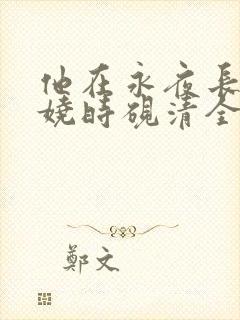 他在永夜長
嬈時硯清全
鄭文